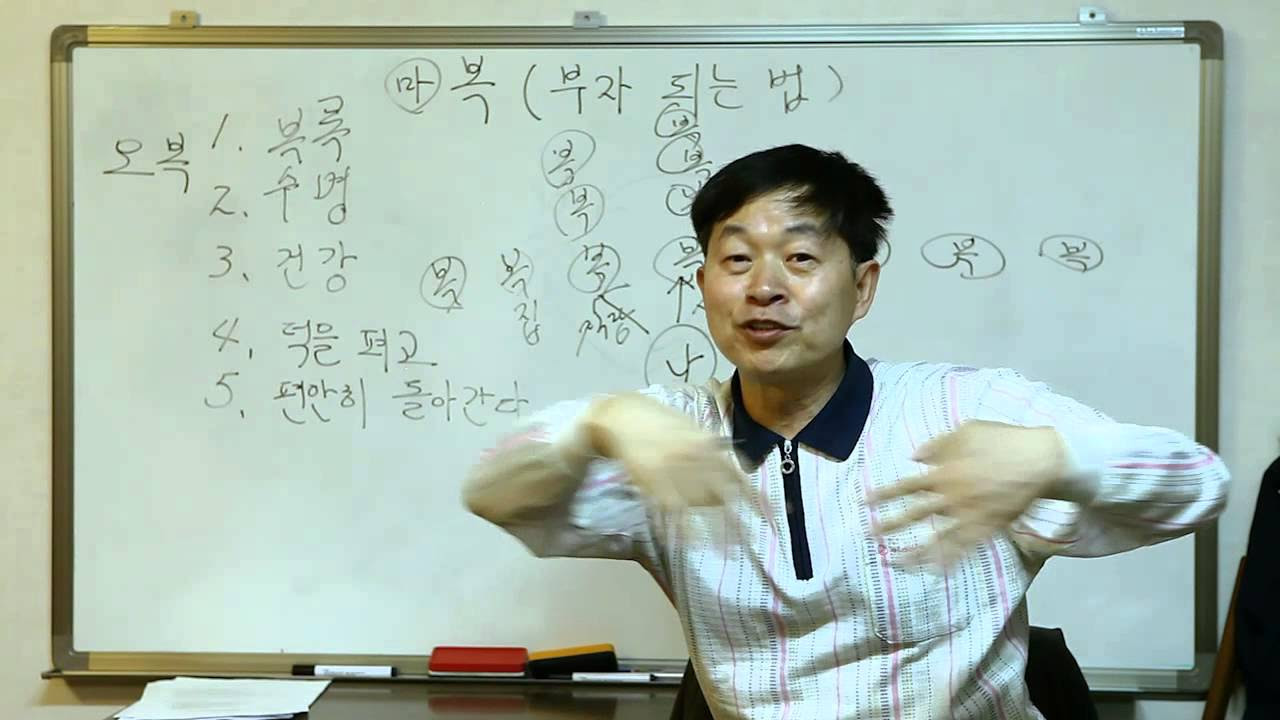 마 복 (부자 되는 법)
오복
1. 복록
2. 수명
3. 건강
4. 덕을 펴고
5. 편안히 돌아간다
복
복 복
복
복 복 복 복 복 복
집 직장
나